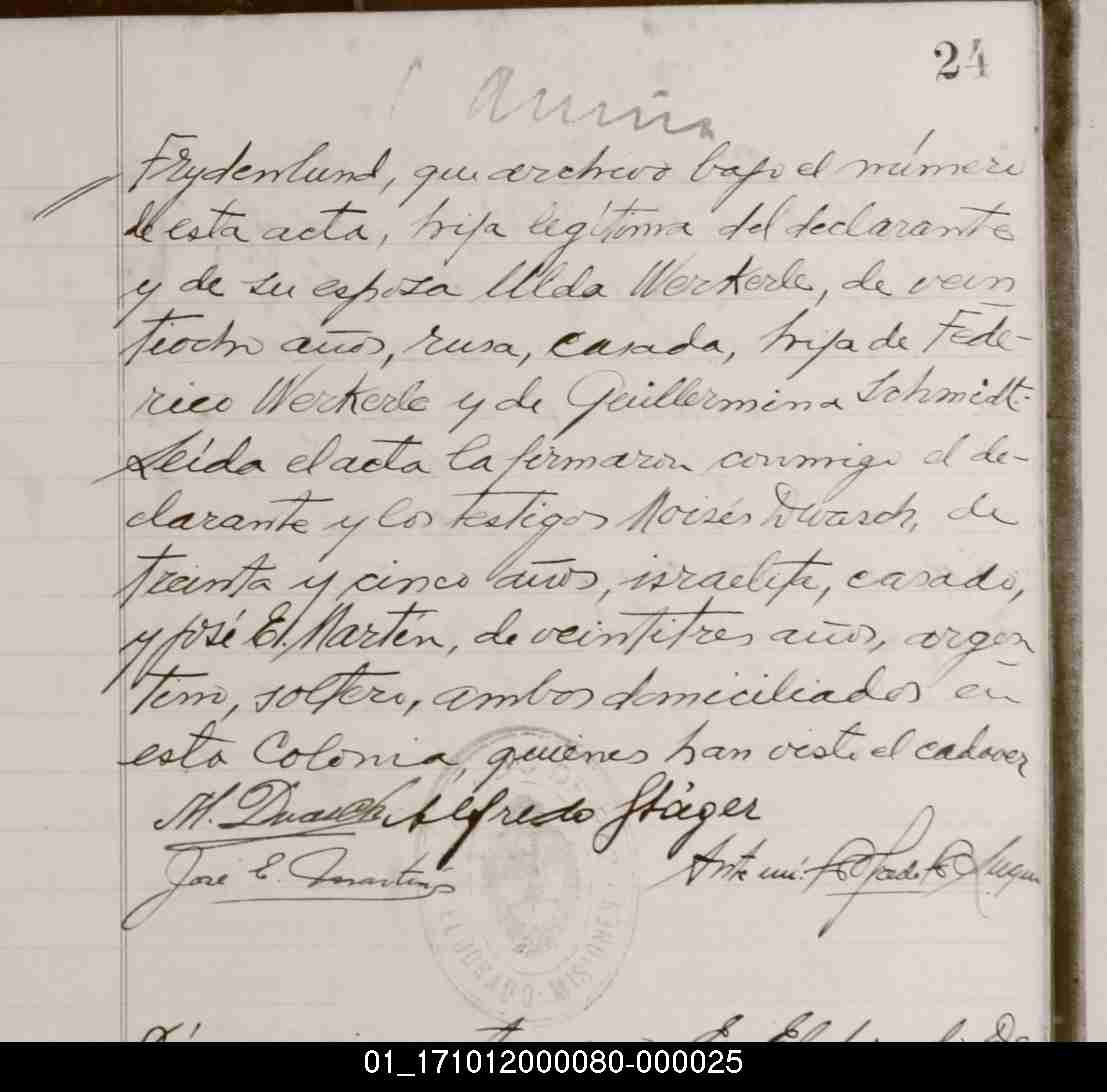 24
Frydenlund, que archivo bajo el número
de esta acta, hija legítima del declarante
y de su esposa Ulda Werkerle, de vein
tiocho años, rusa, casada, hija de Fede-
rico Werkerle y de Guillermina Schmidt.-
Leída el acta la firmaron conmigo el de-
clarante y los testigos Moisés Dwasch, de
treinta y cinco años, israelita, casado,
y José E. Martín, de veintitres años, argen
tino, soltero, ambos domiciliados en
esta Colonia, quienes han visto el cadaver
M. Dwasch Alfredo Stäger
José E. Ante mí:
ELDORADO MISIONES
01_171012000080-000025